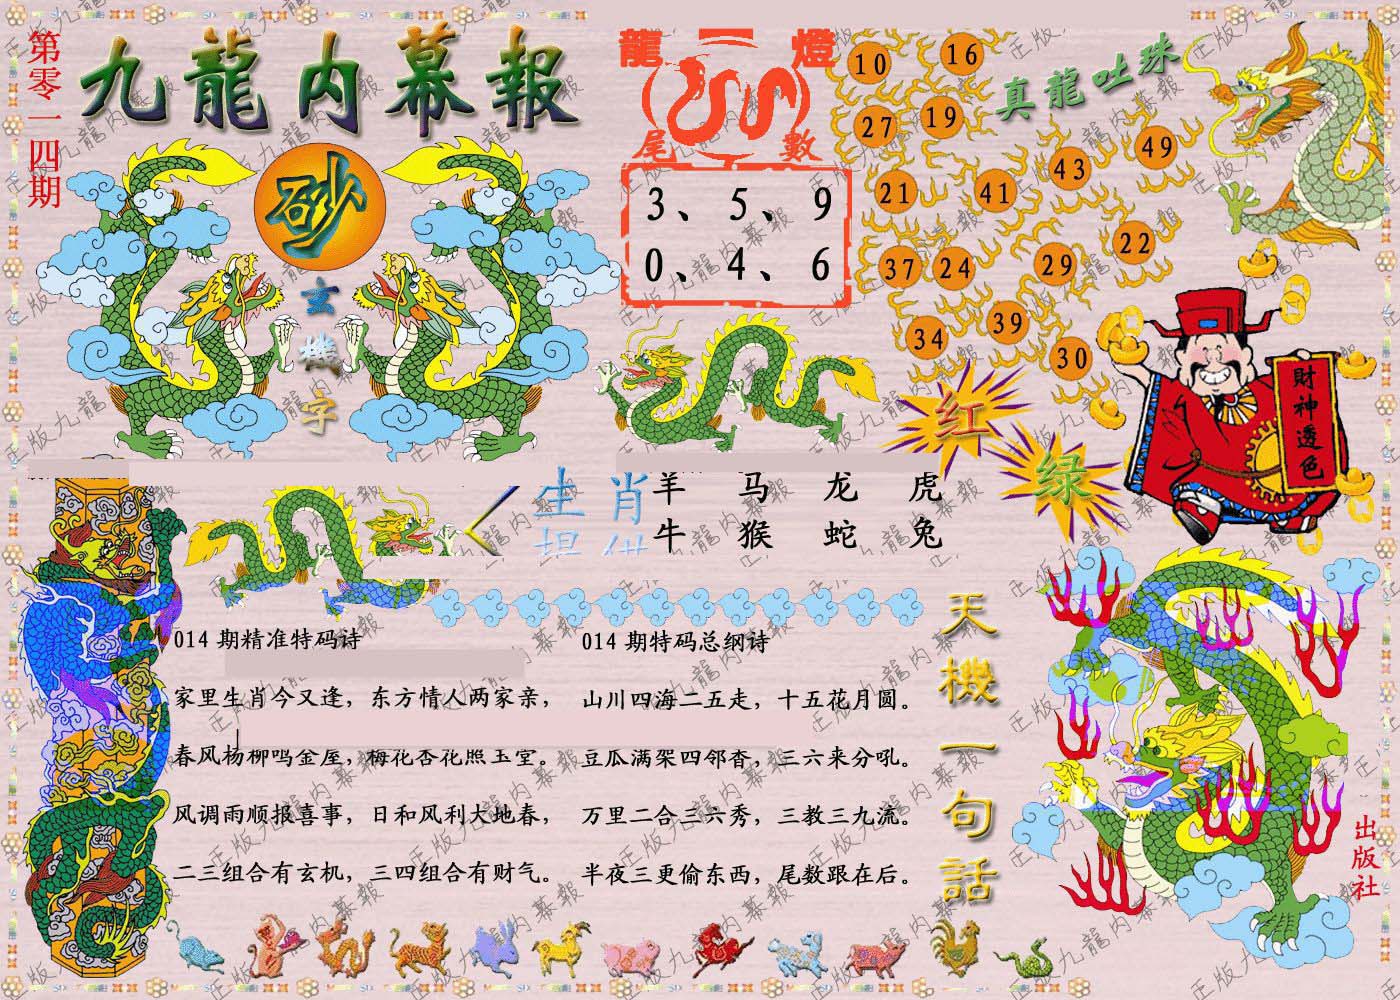 第零一四期
九龍内幕報
砂
玄機字
龍燈
尾數
3、5、9
0、4、6
真龍吐珠
10 16
27 19
49
43
21 41
22
29
37 24
39
34
30
红
绿
財神透色
生肖
羊 马 龙 虎
牛 猴 蛇 兔
014期精准特码诗
家里生肖今又逢，东方情人两家亲，
春风杨柳鸣金屋，梅花杏花照玉堂。
风调雨顺报喜事，日和风利大地春，
二三组合有玄机，三四组合有财气。
014期特码总纲诗
山川四海二五走，十五花月圆。
豆瓜满架四邻香，三六来分吼。
万里二合三六秀，三教三九流。
半夜三更偷东西，尾数跟在后。
天機一句話
出版社
正版九龍内幕報